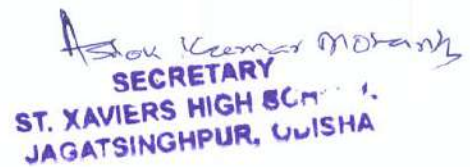 Ashok Kumar Mohanty
SECRETARY
ST. XAVIERS HIGH
JAGATSINGHPUR,